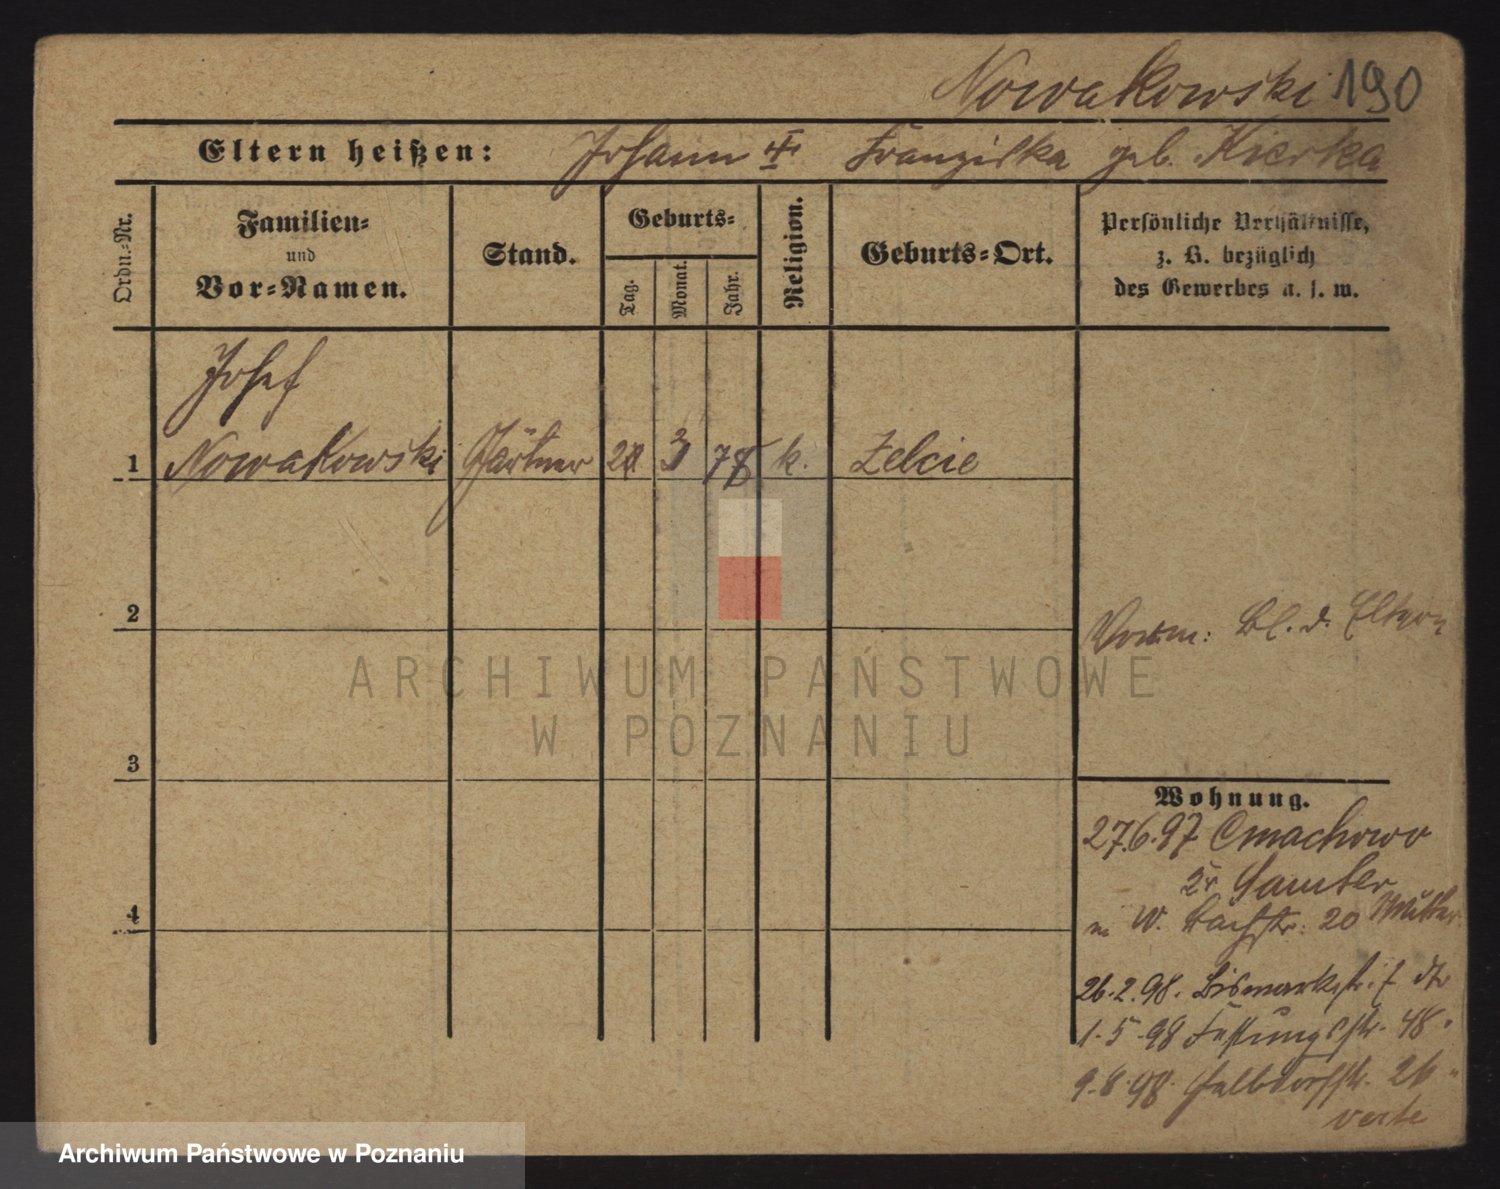 Nowakowski 190
Eltern heißen: Johann Franziska geb. Kierka
Ordn.-Nr.
Familien-
und
Vor-Namen.
Stand.
Geburts-
Tag.
Monat.
Jahr.
Religion.
Geburts-Ort.
Persönliche Verhältnisse,
z. B. bezüglich
des Gewerbes u. s. w.
Josef
1 Nowakowski Gärtner 3 78 k. Zelcie
2
Bl. d. Eltern
3
4
Wohnung.
27.6.97 Cmachowo
Samter
W. 20 Mutter
26.2.98. Bismarckstr. 7
1.5.98 Festungsstr. 48
9.8.98. Halbdorfstr.
verte
ARCHIWUM PAŃSTWOWE
W POZNANIU
Archiwum Państwowe w Poznaniu